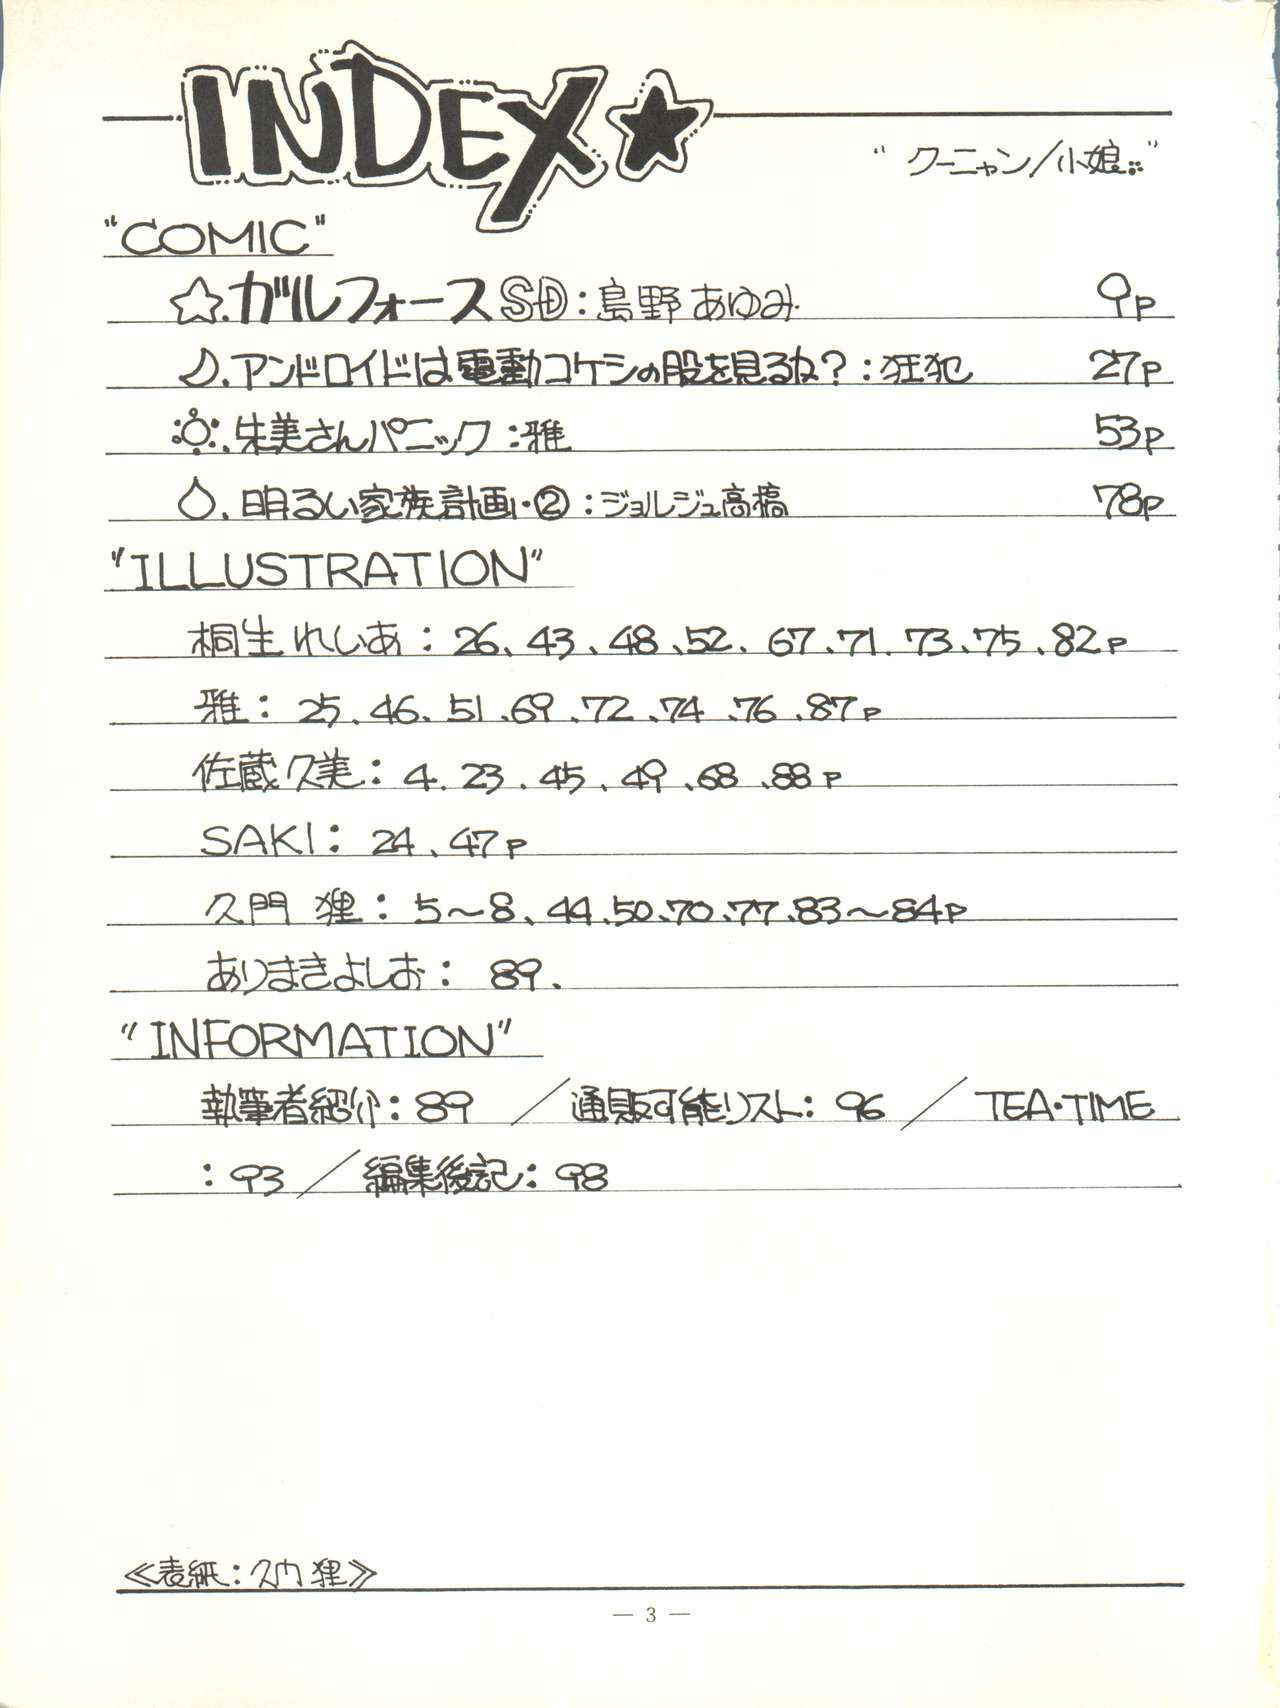 INDEX★
" クーニャン/小娘:: "
"COMIC"
☆.ガルフォースSD:島野あゆみ 9p
☽.アンドロイドは電動コケシの股を見るね?:狂犯 27p
朱美さんパニック:雅 53p
.明るい家族計画・②:ジョルジュ高橋 78p
"ILLUSTRATION"
桐生れいあ:26、43、48、52、67、71、73、75、82p
雅:25、46、51、69、72、74、76、87p
佐蔵久美:4、23、45、49、68、88p
SAKI:24、47p
久門 狸:5〜8、44、50、70、77、83〜84p
ありまきよしお:89.
"INFORMATION"
執筆者紹介:89 /通販可能リスト:96 / TEA・TIME
:93 /編集後記:98
≪表紙:久門 狸≫
— 3 —